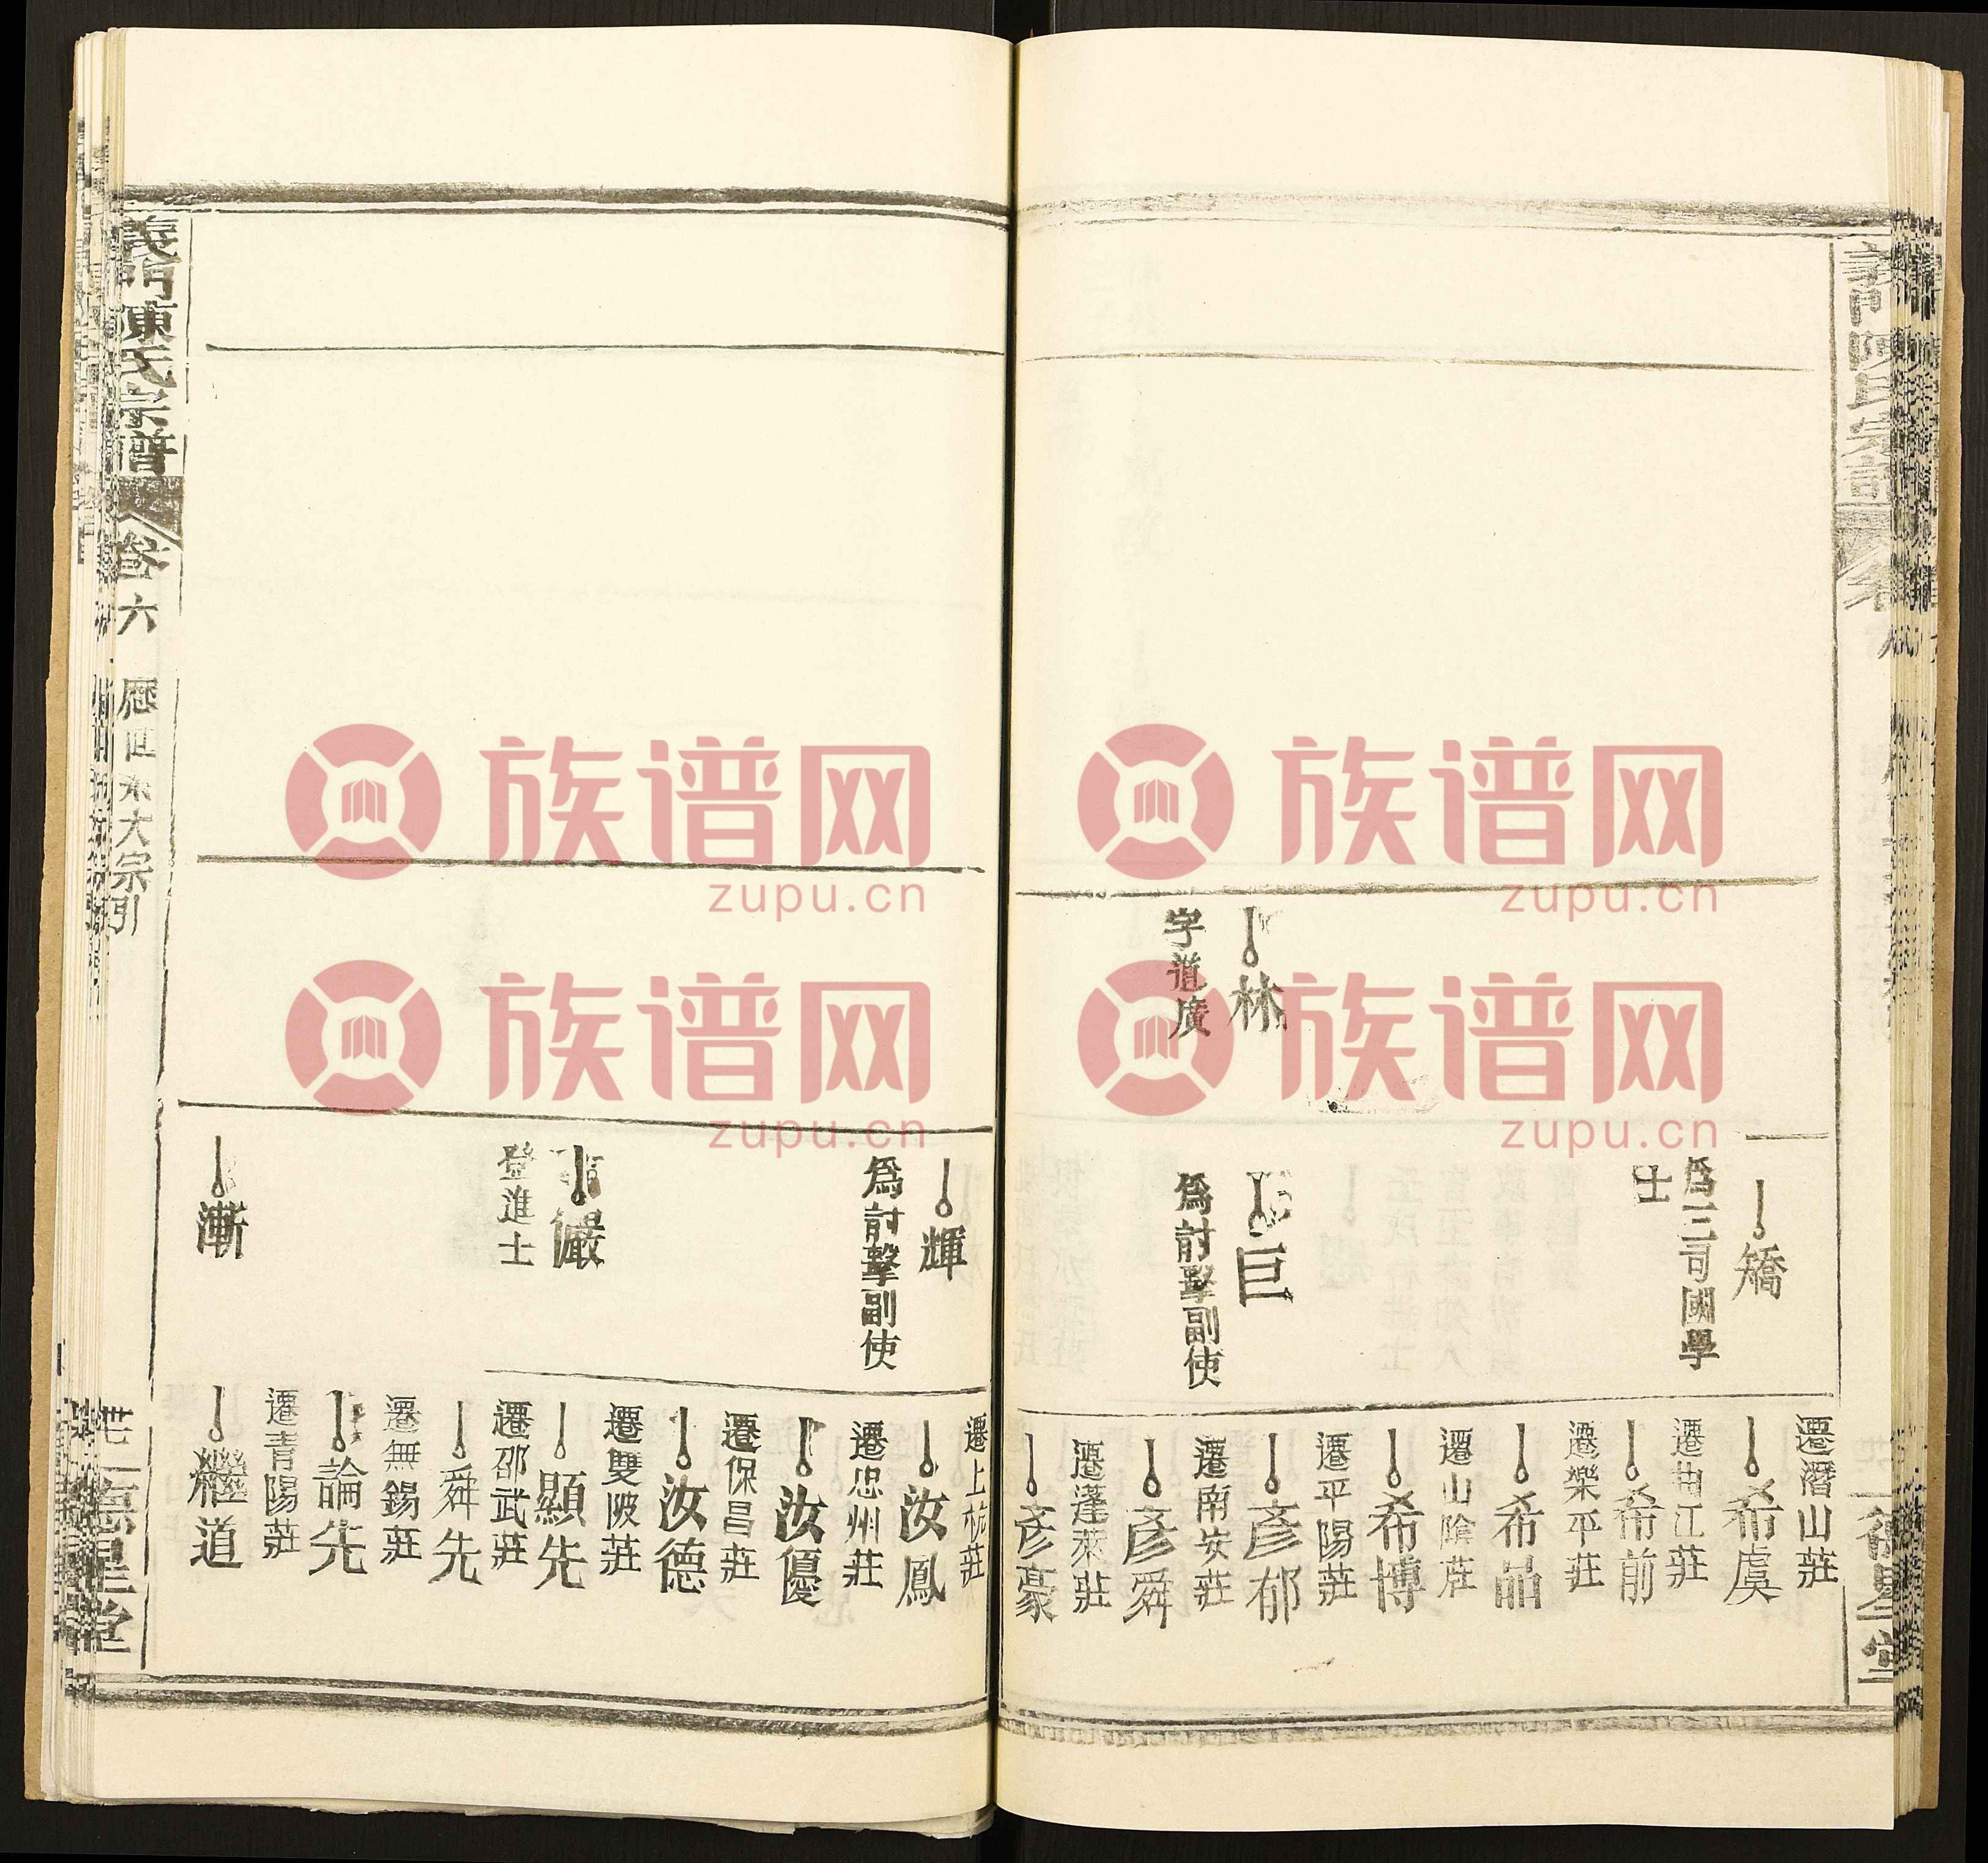 義門陳氏宗譜
林
字道廣
矯
爲三司國學
士
巨
爲討擊副使
遷潛山莊
希虞
遷曲江莊
希前
遷樂平莊
希品
遷山陰莊
希博
遷平陽莊
彥郁
遷南安莊
彥舜
遷蓬萊莊
彥豪
輝
爲討擊副使
登進士
漸
遷上杭莊
汝鳳
遷忠州莊
汝優
遷保昌莊
汝德
遷雙陂莊
顯先
遷邵武莊
舜先
無錫莊
論先
遷青陽莊
繼道
義門陳氏宗譜
卷六
歷世系大宗引
德星堂
族谱网
zupu.cn
族谱网
zupu.cn
族谱网
zupu.cn
族谱网
zupu.cn